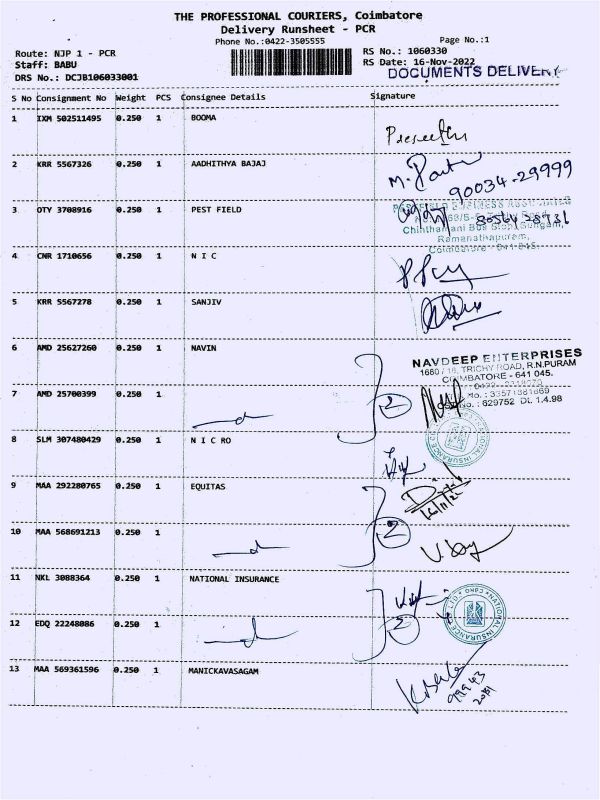 THE PROFESSIONAL COURIERS, Coimbatore
Delivery Runsheet - PCR
Phone No.:0422-3505555
Page No.:1
Route: NJP 1 - PCR
RS No.: 1060330
Staff: BABU
RS Date: 16-Nov-2022
DRS No.: DCJB106033001
DOCUMENTS DELIVERY
S No Consignment No Weight PCS Consignee Details Signature
1 IXM 502511495 0.250 1 BOOMA
2 KRR 5567326 0.250 1 AADHITHYA BAJAJ
90034-29999
3 OTY 3708916 0.250 1 PEST FIELD
Chinthamani Bus Stop, Sungam,
Ramanathapuram,
Coimbatore - 641 045.
4 CNR 1710656 0.250 1 N I C
5 KRR 5567278 0.250 1 SANJIV
6 AMD 25627260 0.250 1 NAVIN
NAVDEEP ENTERPRISES
1660 / 16, TRICHY ROAD, R.N.PURAM
COIMBATORE - 641 045.
7 AMD 25700399 0.250 1
629752 Dt. 1.4.98
2
8 SLM 307480429 0.250 1 N I C R O
9 MAA 292280765 0.250 1 EQUITAS
16/11/22
10 MAA 568691213 0.250 1
2
11 NKL 3088364 0.250 1 NATIONAL INSURANCE
NATIONAL INSURANCE CO. LTD.
12 EDQ 22248086 0.250 1
2
13 MAA 569361596 0.250 1 MANICKAVASAGAM